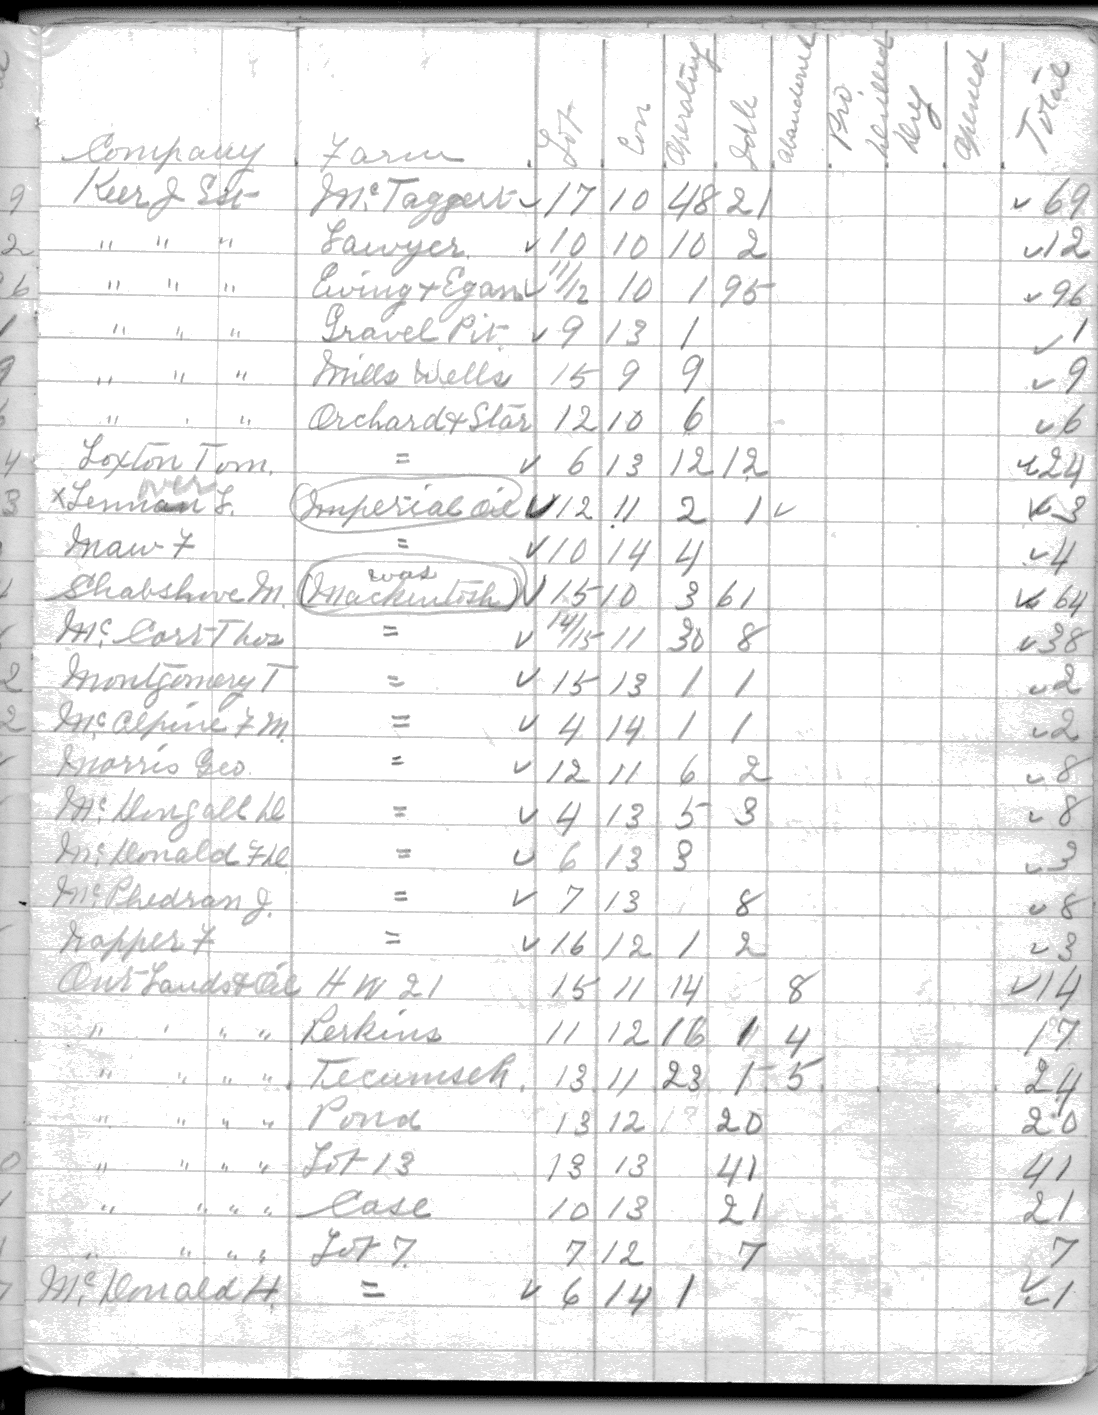 Company Farm Lot Con Operating Idle Abandoned Pro Drilled Dry Opened Total
Kerr J Est McTaggert ✓ 17 10 48 21 ✓ 69
" " " Sawyer ✓ 10 10 10 2 ✓ 12
" " " Ewing & Egan ✓ 11/12 10 1 95 ✓ 96
" " " Gravel Pit ✓ 9 13 1 ✓ 1
" " " Mills Wells 15 9 9 ✓ 9
" " " Orchard & Star 12 10 6 ✓ 6
Loxton Tom. = ✓ 6 13 12 12 ✓ 24
over
x Lennan L. Imperial Oil ✓ 12 11 2 1 ✓ ✓ 3
Maw F = ✓ 10 14 4 ✓ 4
was
M. Mackintosh ✓ 15 10 3 61 ✓ 64
Mc. Thos = ✓ 14/15 11 30 8 ✓ 38
Montgomery T = ✓ 15 13 1 1 ✓ 2
Mc.Alpine F M. = ✓ 4 14 1 1 ✓ 2
Morris Geo. = ✓ 12 11 6 2 ✓ 8
Mc.Dougall D = ✓ 4 13 5 3 ✓ 8
Mc.Donald F D. = ✓ 6 13 3 ✓ 3
Mc.Phedran J. = ✓ 7 13 8 ✓ 8
Napper F = ✓ 16 12 1 2 ✓ 3
Ont Lands & Oil H W 21 15 11 14 8 ✓ 14
" " " " Perkins 11 12 16 1 4 17
" " " " Tecumseh. 13 11 23 1 5 24
" " " " Pond 13 12 20 20
" " " " Lot 13 13 13 41 41
" " " " Case 10 13 21 21
" " " " Lot 7. 7 12 7 7
Mc.Donald H. = ✓ 6 14 1 ✓ ✓ 1